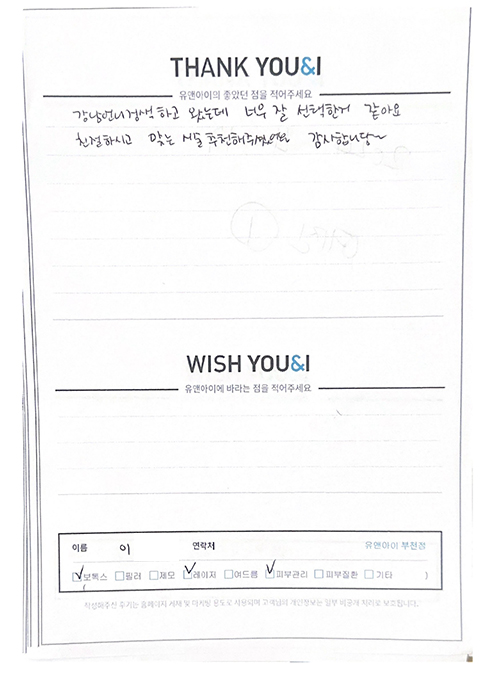 THANK YOU&I
유앤아이의 좋았던 점을 적어주세요
강남언니검색하고 왔는데 너무 잘 선택한거 같아요
친절하시고 맞는 시술 추천해주셨어요 감사합니당~
WISH YOU&I
유앤아이에 바라는 점을 적어주세요
이름 이 연락처 유앤아이 부천점
보톡스 필러 제모 레이저 여드름 피부관리 피부질환 기타 )
(
작성해주신 후기는 홈페이지 게재 및 마케팅 용도로 사용되며 고객님의 개인정보는 일부 비공개 처리로 보호됩니다.